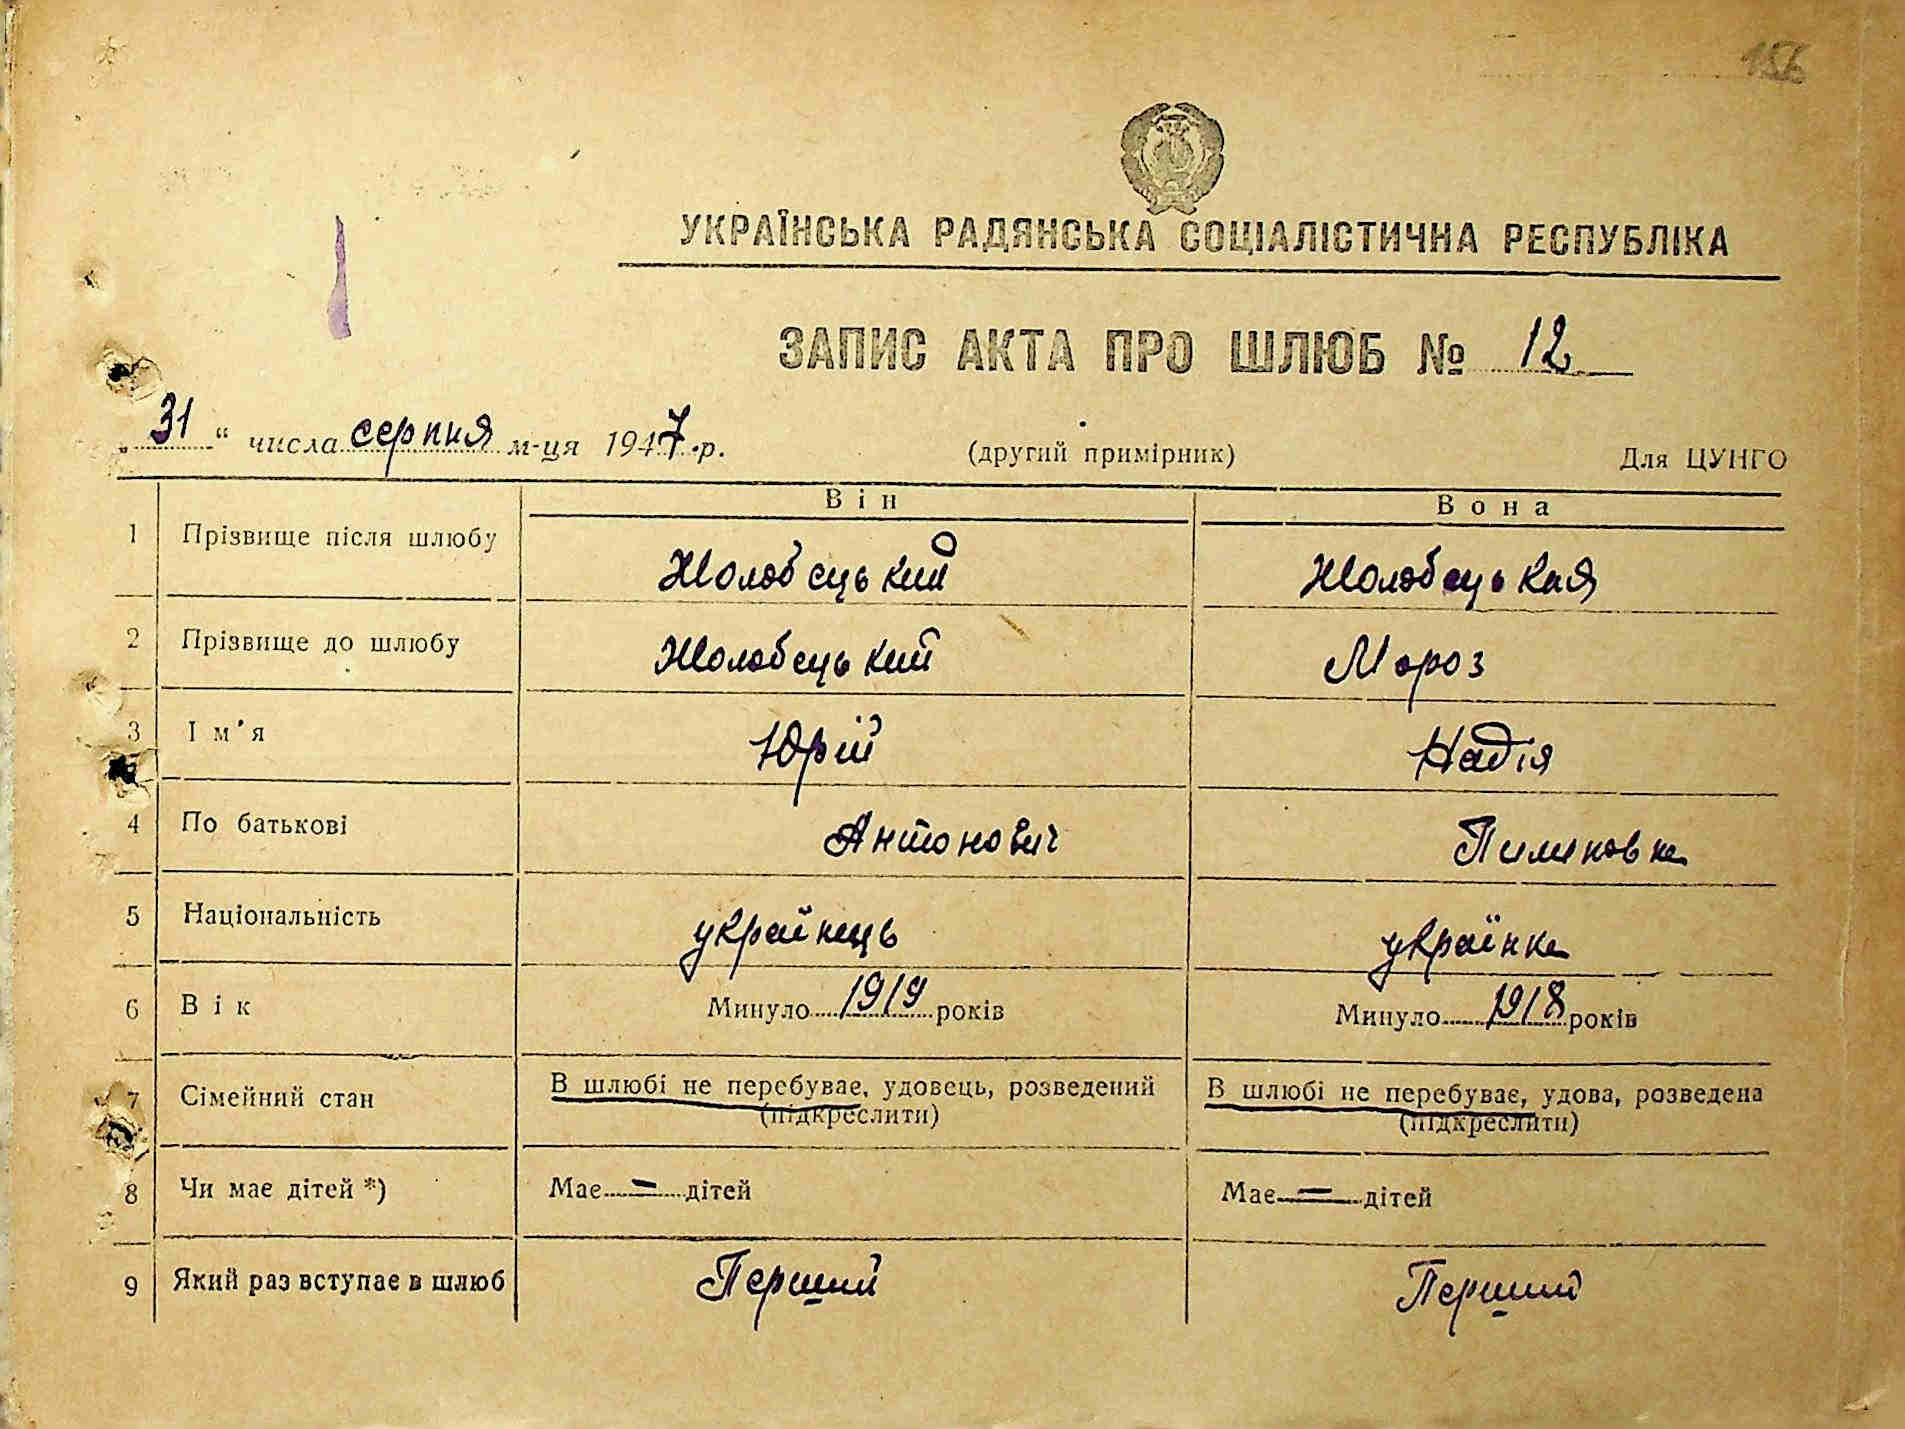 156
УКРАЇНСЬКА РАДЯНСЬКА СОЦІАЛІСТИЧНА РЕСПУБЛІКА
ЗАПИС АКТА ПРО ШЛЮБ № 12
„31“ числа серпня м-ця 1947 р. (другий примірник) Для ЦУНГО
Він Вона
1 Прізвище після шлюбу Жолобецький Жолобецькая
2 Прізвище до шлюбу Жолобецький Мороз
3 Ім'я Юрій Надія
4 По батькові Антонович Пилиповна
5 Національність українець українка
6 Вік Минуло 1919 років Минуло 1918 років
7 Сімейний стан В шлюбі не перебуває, удовець, розведений В шлюбі не перебуває, удова, розведена
(підкреслити) (підкреслити)
8 Чи має дітей *) Має — дітей Має — дітей
9 Який раз вступає в шлюб Перший Перший